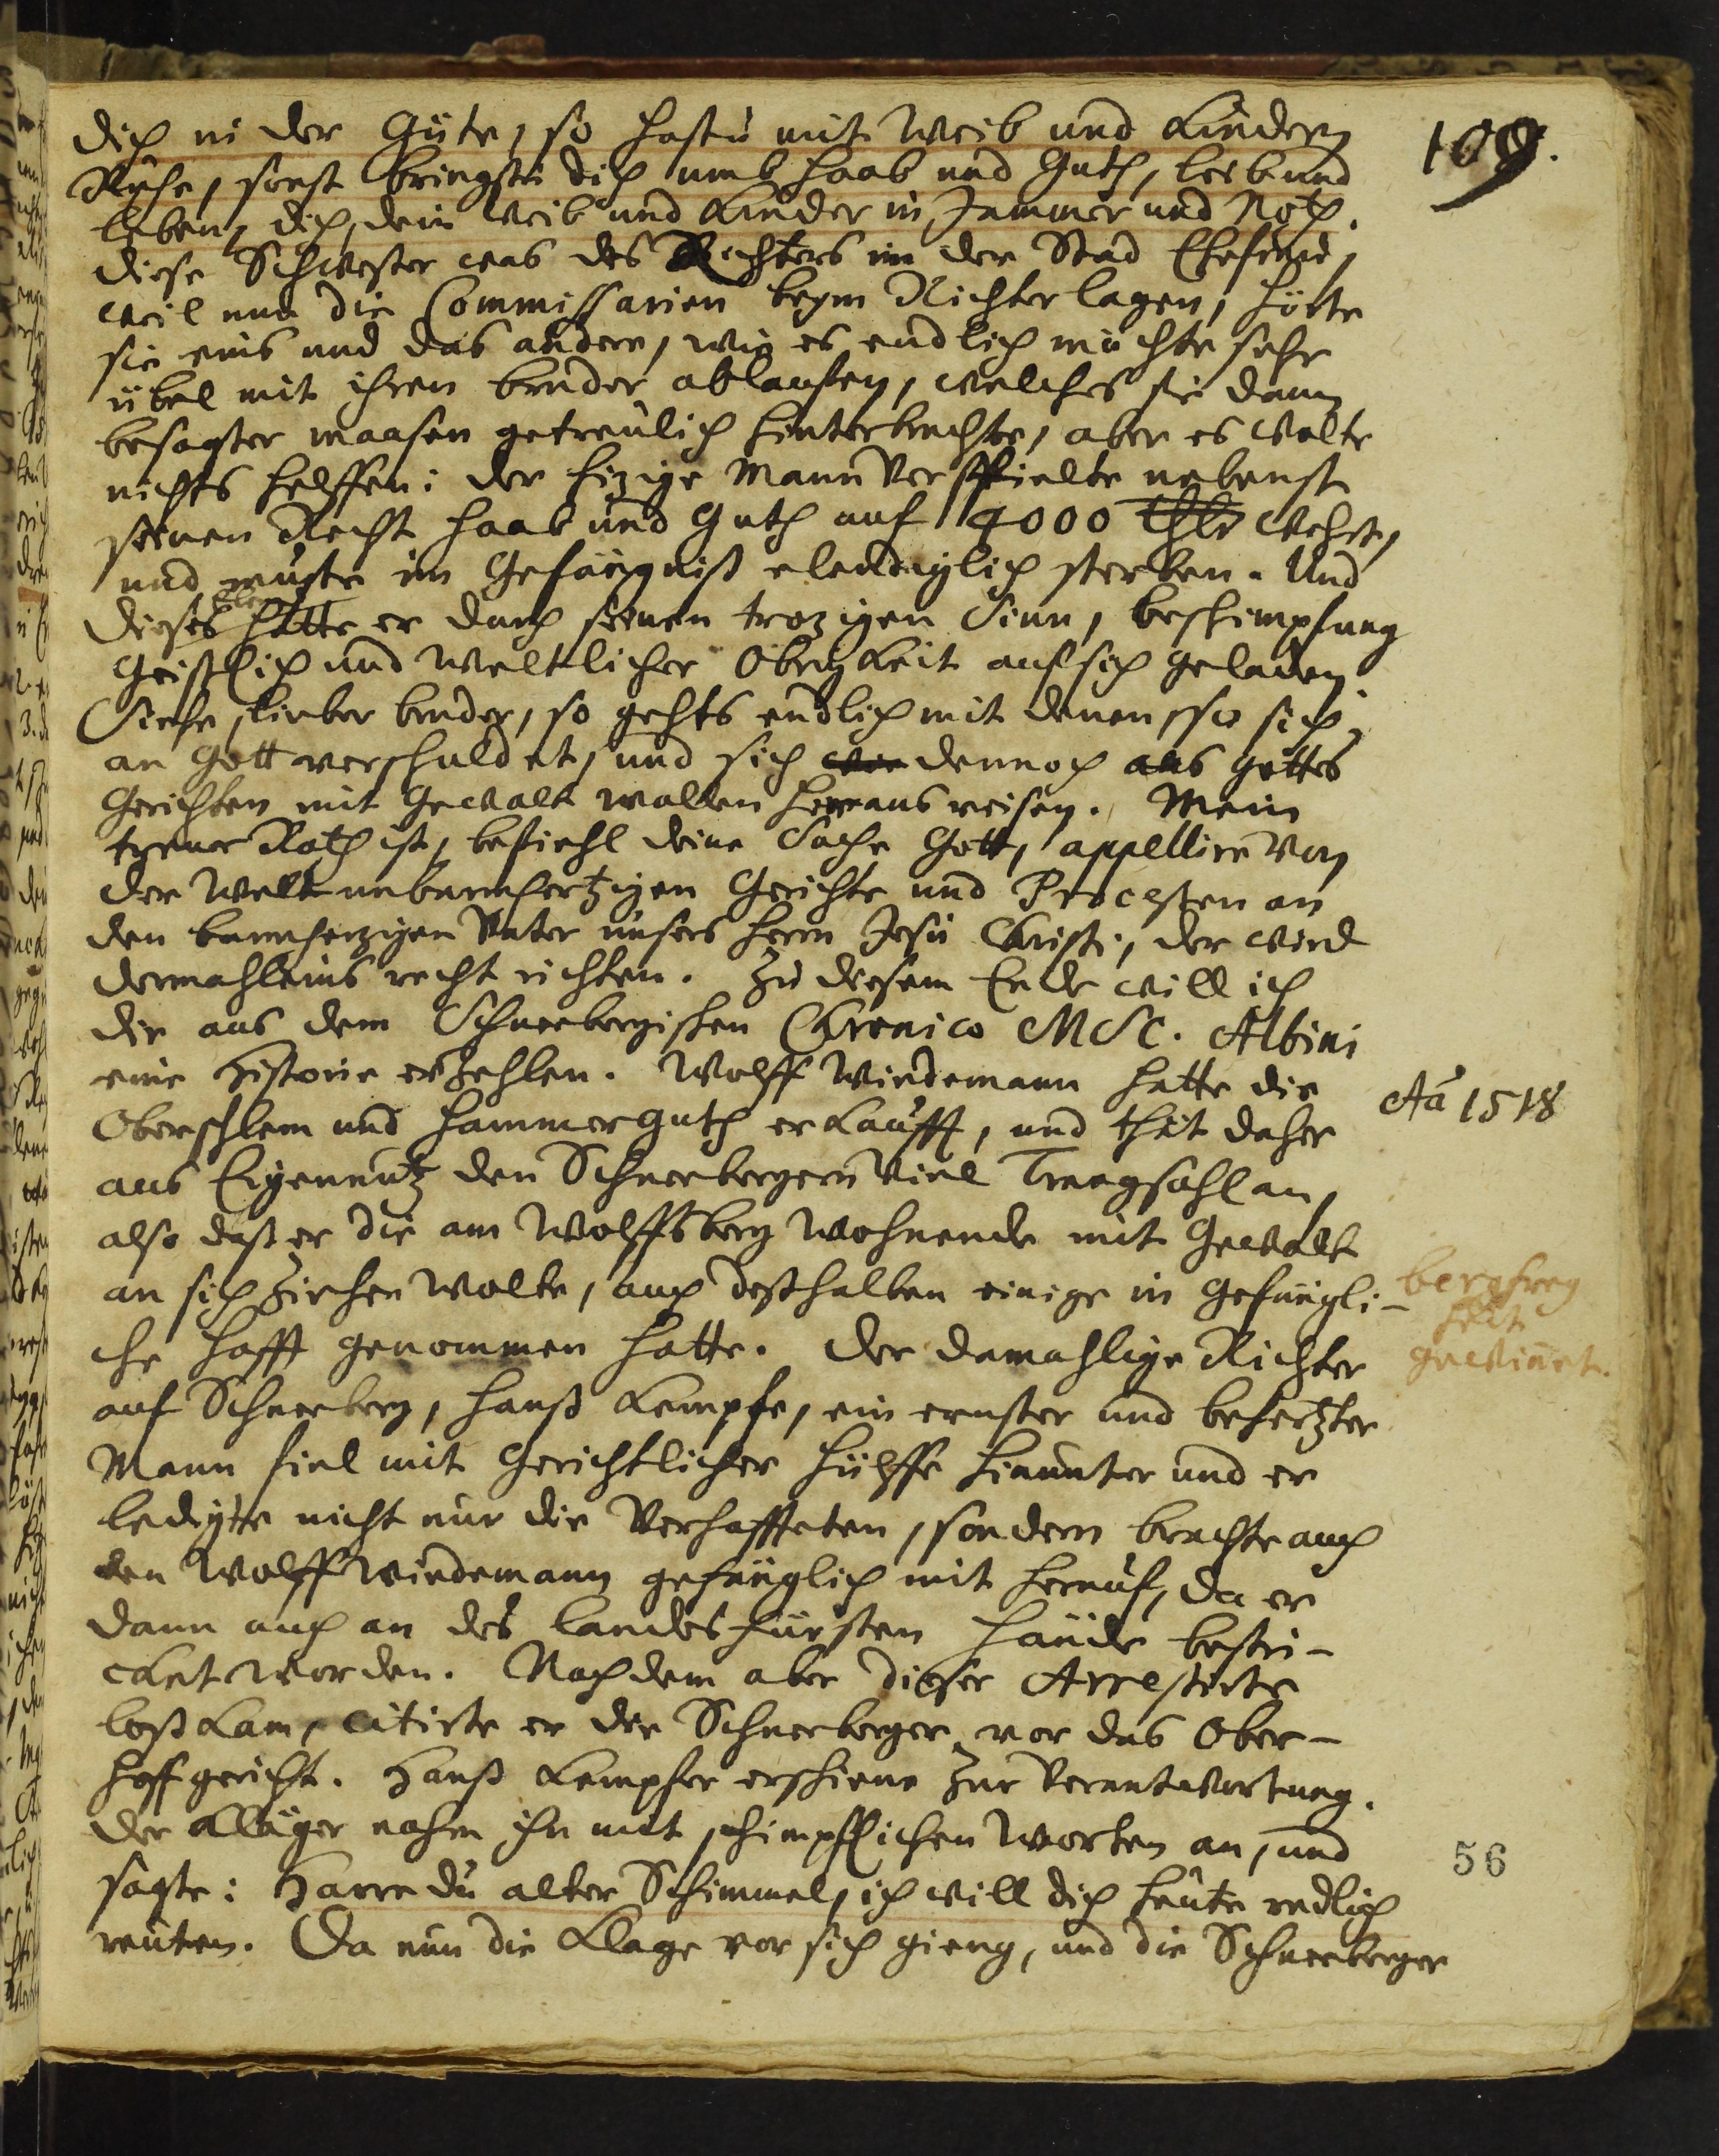 109.
dich in der Güte, so hastu mit Weib und Kindern
Ruhe, sonst bringstu dich umb Haab und Guth, Leib und
Leben, dich, dein Weib und Kinder in Jammer und Noth.
Diese Schwester was des Richters in der Stad Ehefrau,
weil nun die Commissarien beym Richter lagen, hörte
sie eins und das andere, wie es endlich möchte sehr
übel mit ihren Bruder ablauffen, welches sie dann
besagter maasen getreulich hinterbrachte, aber es wolte
nichts helffen: der hizige Mann verspielte nebenst
seinen Recht Haab und Guth auf 4000 thlr wehrt,
und muste im Gefängniß elendiglich sterben. Und
dieses hatte er durch seinen trozigen Sinn, beschimpfung
Geistlich und Weltlicher Obrigkeit auf sich geladen.
Siehe, lieber Bruder, so gehts endlich mit denen, so sich
an Gott verschuldet, und sich dennoch aus Gottes
Gerichten mit Gewalt wollen heraus reisen. Mein
treuer Rath ist, befiehl deine Sache Gott, appellire von
der Welt unbarmhertzigen Gerichte und Processen an
den barmherzigen Vater unsers Herrn Jesu Christi, der wird
dermahleins recht richten. Zu diesem Ende will ich
dir aus dem Schneebergischen Chronico MSC. Albini
eine Historie erzehlen. Wolff Wiedemann hatte die
Aō 1518
Oberschlem und Hammerguth erkaufft, und thät daher
aus Eigennutz den Schneebergern viel Trangsahl an,
also daß er die am Wolffsberg wohnende mit Gewalt
an sich ziehen wolte, auch deßhalben einige in Gefängli-
bergfrey
heit
gewinnet.
che Hafft genommen hatte. Der damahlige Richter
auf Schneeberg, Hanß Kempfe, ein ernster und behertzter
Mann fiel mit Gerichtlicher Hülffe hinunter und er
ledigte nicht nur die Verhaffteten, sondern brachte auch
den Wolff Wiedemann gefänglich mit herauf, da er
dann auch an des Landes Fürsten Hände bestri-
cket worden. Nachdem aber dieser Arrestirte
loß kam, citirte er die Schneeberger vor das Ober-
hoffgericht. Hanß Kempfer erschiene zur Verantwortung.
Der Kläger nahm ihn mit schimpflichen Worten an, und
sagte: Harre du alter Schimmel, ich will dich heute redlich
56
reuten. Da nun die Klage vor sich gieng, und die Schneeberger